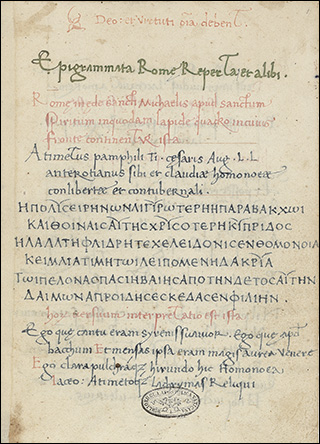 Deo: et Virtuti oīa debenT.
Epigrammata Rome RepertA et alibi.
Rome in ede sancti Michaelis apud sanctum
Spiritum in quodam lapide quadro in cuius
fronte continentur ista
Atimetus pamphili Ti. cæsaris Aug. L. L
anterotianus sibi et claudiæ homonoeæ
conlibertæ et contubernali.
ΗΠΟΛΥCΕΙΡΗΝωΝΛΙΓΥΡωΤΕΡΗΗΠΑΡΑΒΑΚΧωΙ
ΚΑΙΘΟΙΝΑΙCΑΥΤΗCΧΡΥCΟΤΕΡΗΚΥΠΡΙΔΟC
ΗΛΑΛΙΗΦΑΙΔΡΗΤΕΧΕΛΕΙΔΟΝΙCΕΝΘΟΜΟΝΟΙΑ
ΚΕΙΜΑΙΑΤΙΜΗΤωΙΛΕΙΠΟΜΕΝΗΔΑΚΡΥΑ
ΤωΙΠΕΛΟΝΑCΠΑCΙΗΒΑΙΗCΑΠΟΤΗΝΔΕΤΟCΑΥΤΗΝ
ΔΑΙΜωΝΑΠΡΟΙΔΗCΕCΚΕΔΑCΕΝΦΙΛΙΗΝ.
hor versuum interpretatio est ista
Ego quæ cantu eram syrenissuavior. Ego quæ apd
bacchum Et mensas ipsa eram magis aurea Venere
Ego clara pulchraq; hirundo hic Homonoea
Iaceo: Atimeto Lachrymas Reliqui